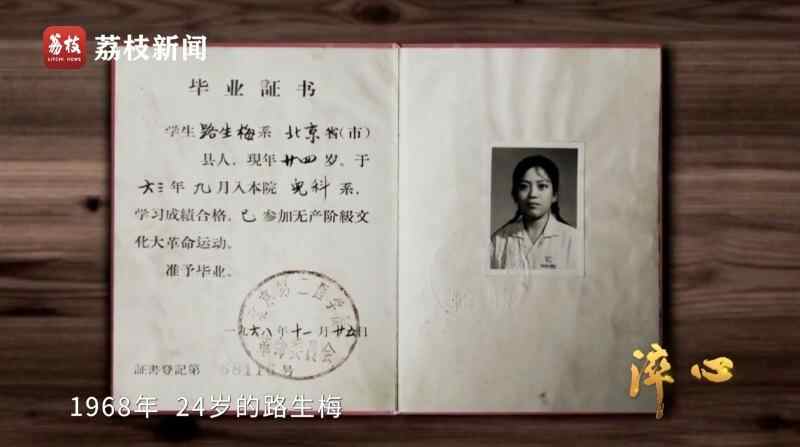 荔枝
LITCHI NEWS
荔枝新闻
毕业証书
学生路生梅系北京省(市)
县人，现年廿四岁，于
六三年九月入本院儿科系，
学习成績合格，已参加无产阶級文
化大革命运动。
准予毕业。
北京第二医学院
革命委員会
一九六八年十一月廿五日
証書登記第68116号
淬心
1968年 24岁的路生梅